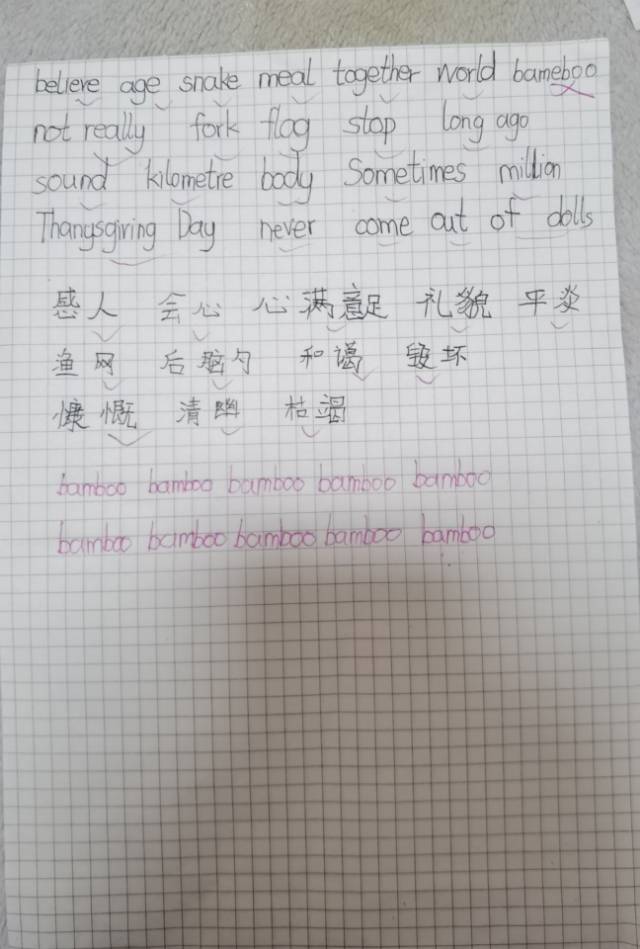 believe age snake meal together world bameboo
not really fork flag stop long ago
sound kilometre body Sometimes million
Thangsgiring Day never come out of dolls
感人 会心 心满意足 礼貌 平炎
渔网 后脑勺 和谒 毁坏
慷慨 清幽 枯竭
bamboo bamboo bamboo bamboo bamboo
bamboo bamboo bamboo bamboo bamboo